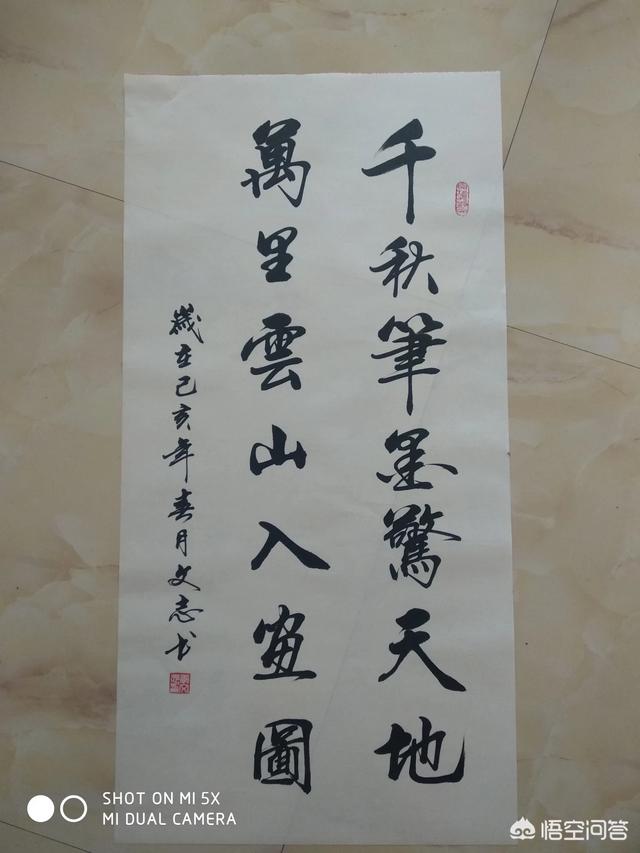 千秋筆墨驚天地
萬里雲山入畫圖
歲在己亥年春月文志书
SHOT ON MI 5X
MI DUAL CAMERA
悟空问答